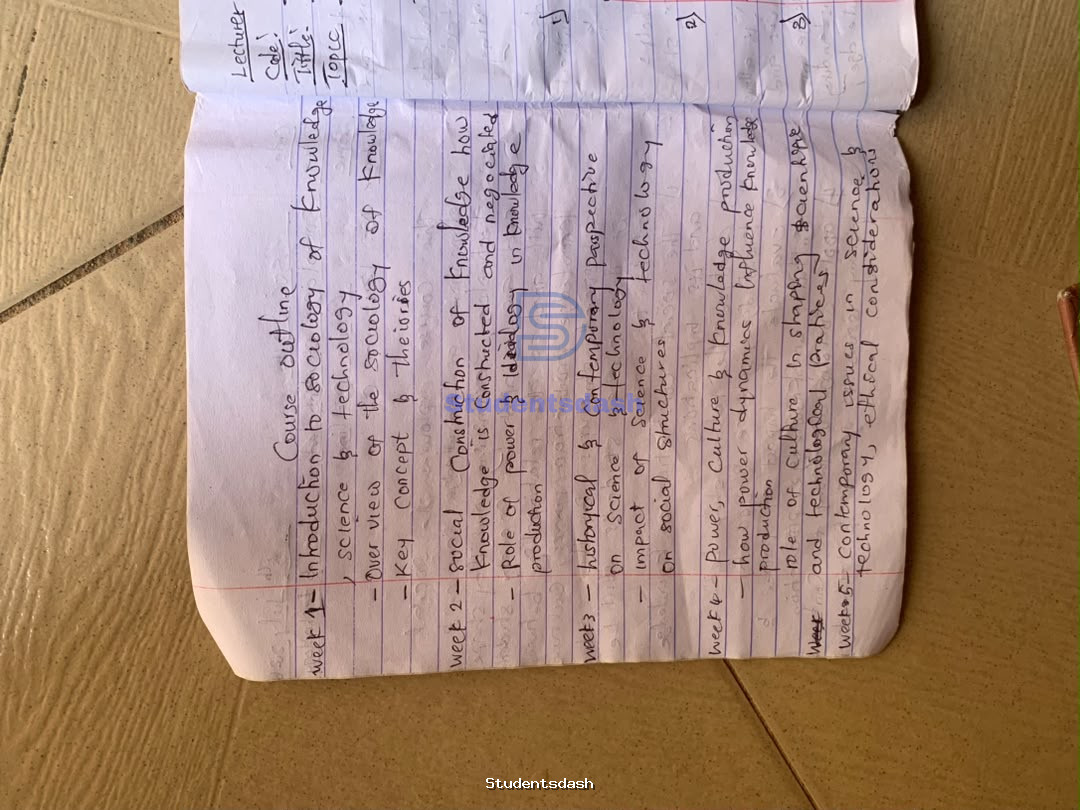 Course outline
week 1 - Introduction to sociology of knowledge
, science & technology
- Over view of the sociology of knowledge
- Key concept & theiories
week 2 - social Constrution of knowledge how
knowledge is constructed and negociated
- Role of power & idiology in knowledge
production
week 3 - historical & Contemporary perspective
on science & technology
- impact of science & technology
on social structures
week 4 - power, culture & knowledge production
- how power dynamics influence knowledge
production
role of culture in shaping scienhfic
and technological pratices
week 5 - contemporary issues in science &
technology, ethical considerations
Lecturer
Code:
Tittle:-
Topic
1)
2)
3)
Studentsdash
Studentsdash